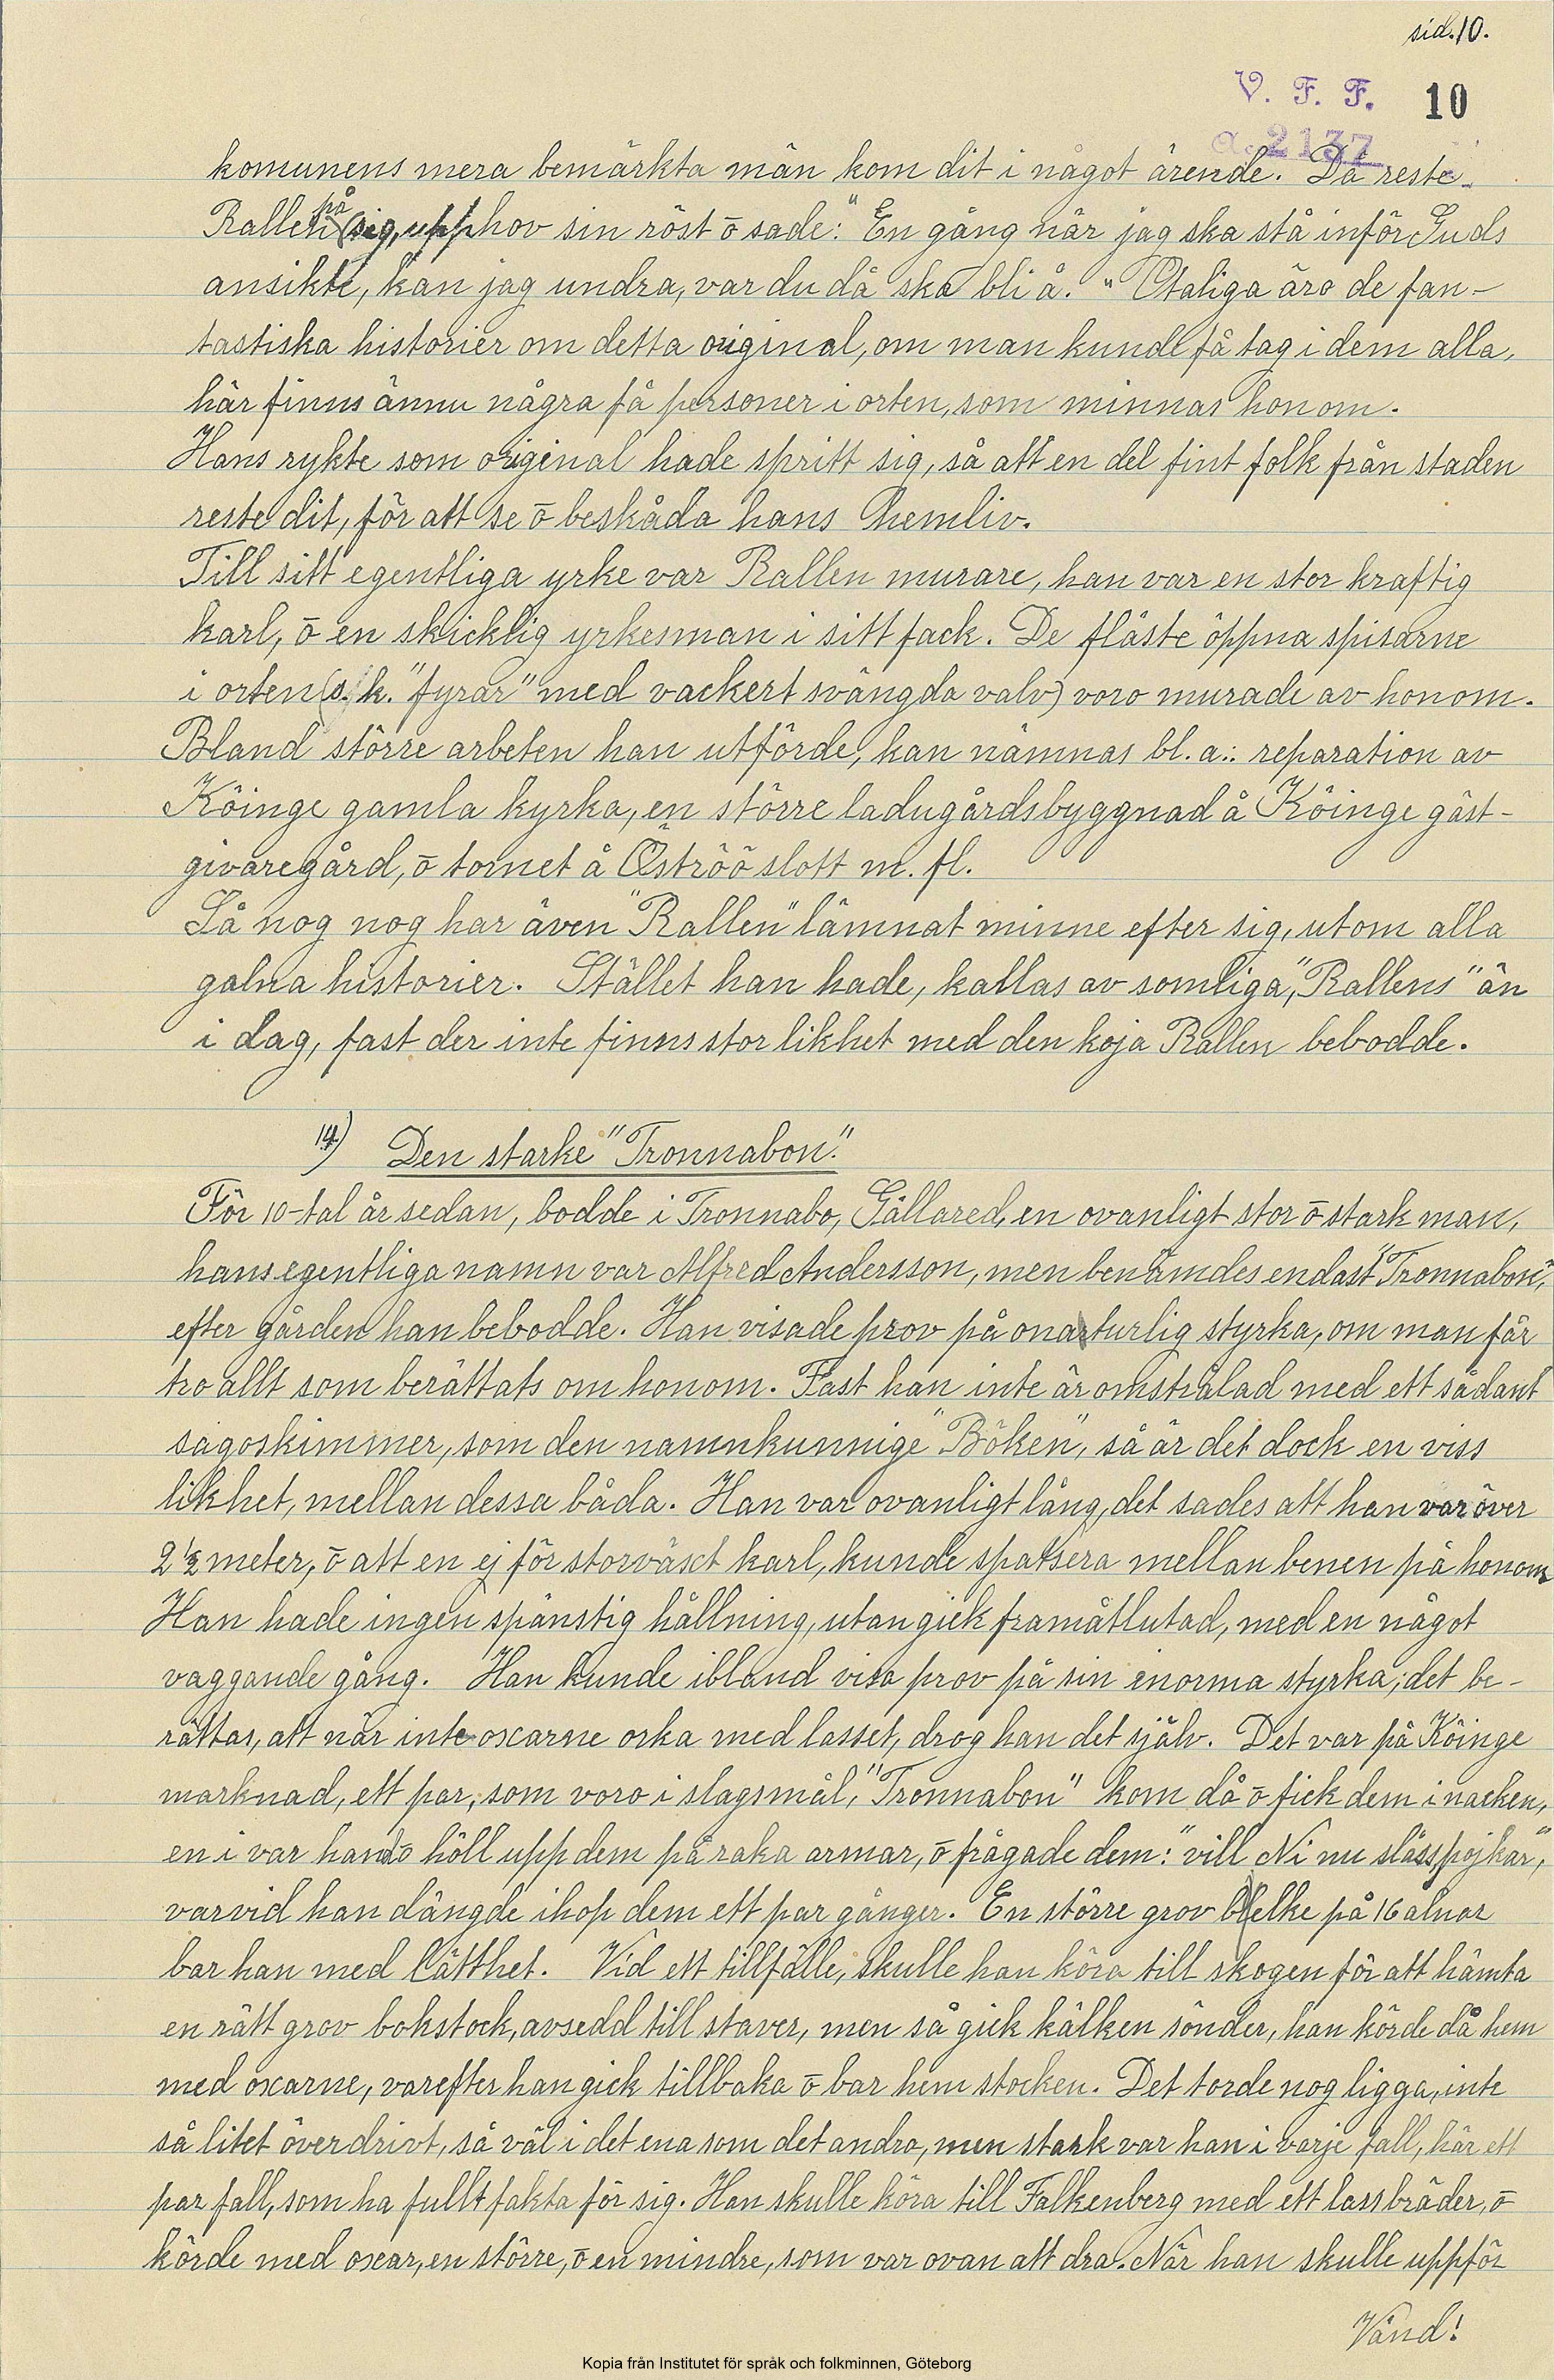 sid.10.
V. F. F. 10
a. 2137
komunens mera bemärkta män kom dit i något ärende. Då reste
Rallen på sig, upphov sin röst ō sade: "En gång när jag ska stå inför Guds
ansikte, kan jag undra, var du då ska bli å." Otaliga äro de fan-
tastiska historier om detta original, om man kunde få tag i dem alla,
här finns ännu några få personer i orten, som minnas honom.
Hans rykte som original hade spritt sig, så att en del fint folk från staden
reste dit, för att se ō beskåda hans hemliv.
Till sitt egentliga yrke var Rallen murare, han var en stor kraftig
karl, ō en skicklig yrkesman i sitt fack. De fläste öppna spisarne
i orten (s.k. "fyrar" med vackert svängda valv) voro murade av honom.
Bland större arbeten han utförde, kan nämnas bl.a.: reparation av
Köinge gamla kyrka, en större ladugårdsbyggnad å Köinge gäst-
givaregård, ō tornet å Öströö slott m. fl.
Så nog nog har även "Rallen" lämnat minne efter sig, utom alla
galna historier. Stället han hade, kallas av somliga, "Rallens" än
i dag, fast der inte finns stor likhet med den koja Rallen bebodde.
14) Den starke "Tronnabon".
För 10-tal år sedan, bodde i Tronnabo, Gällared, en ovanligt stor ō stark man,
hans egentliga namn var Alfred Andersson, men benämdes endast "Tronnabon",
efter gården han bebodde. Han visade prov på onaturlig styrka, om man får
tro allt som berättats om honom. Fast han inte är omstrålad med ett sådant
sagoskimmer, som den namnkunnige "Böken", så är det dock en viss
likhet, mellan dessa båda. Han var ovanligt lång, det sades att han var över
2 ½ meter, ō att en ej för storväxt karl, kunde spatsera mellan benen på honom
Han hade ingen spänstig hållning, utan gick framåtlutad, med en något
vaggande gång. Han kunde ibland visa prov på sin enorma styrka; det be-
rättas, att när inte oxarne orka med lasset, drog han det själv. Det var på Köinge
marknad, ett par, som voro i slagsmål, "Tronnabon" kom då ō fick dem i nacken,
en i var hand ō höll upp dem på raka armar, ō frågade dem: "vill Ni nu slåss pojkar",
varvid han dängde ihop dem ett par gånger. En större grov bielke på 16 alnar
bar han med lätthet. Vid ett tillfälle, skulle han köra till skogen för att hämta
en rätt grov bokstock, avsedd till staver, men så gick kälken sönder, han körde då hem
med oxarne, varefter han gick tillbaka ō bar hem stocken. Det torde nog ligga, inte
så litet överdrivt, så väl i det ena som det andra, men stark var han i varje fall, här ett
par fall, som ha fullt fakta för sig. Han skulle köra till Falkenberg med ett lass bräder, ō
körde med oxar, en större, ō en mindre, som var ovan att dra. När han skulle uppför
Vänd!
Kopia från Institutet för språk och folkminnen, Göteborg